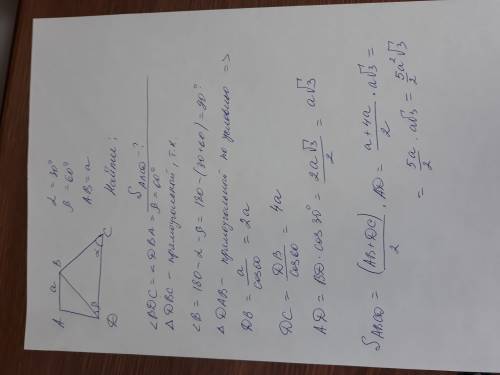 A
a
B
α
C
β
D
α = 30°
β = 60°
AB = a
Найти:
S ABCD - ?
∠BDC = ∠DBA = β = 60°
△ DBC - прямоугольный, т.к.
∠B = 180 - α - β = 180 - (30+60) = 90°
△ DAB - прямоугольный по условию =>
DB = a/cos60 = 2a
DC = DB/cos60 = 4a
AD = BD · cos 30° = 2a√3/2 = a√3
S ABCD = (AB+DC)/2 · AD = a+4a/2 · a√3 =
= 5a/2 · a√3 = 5a²√3/2